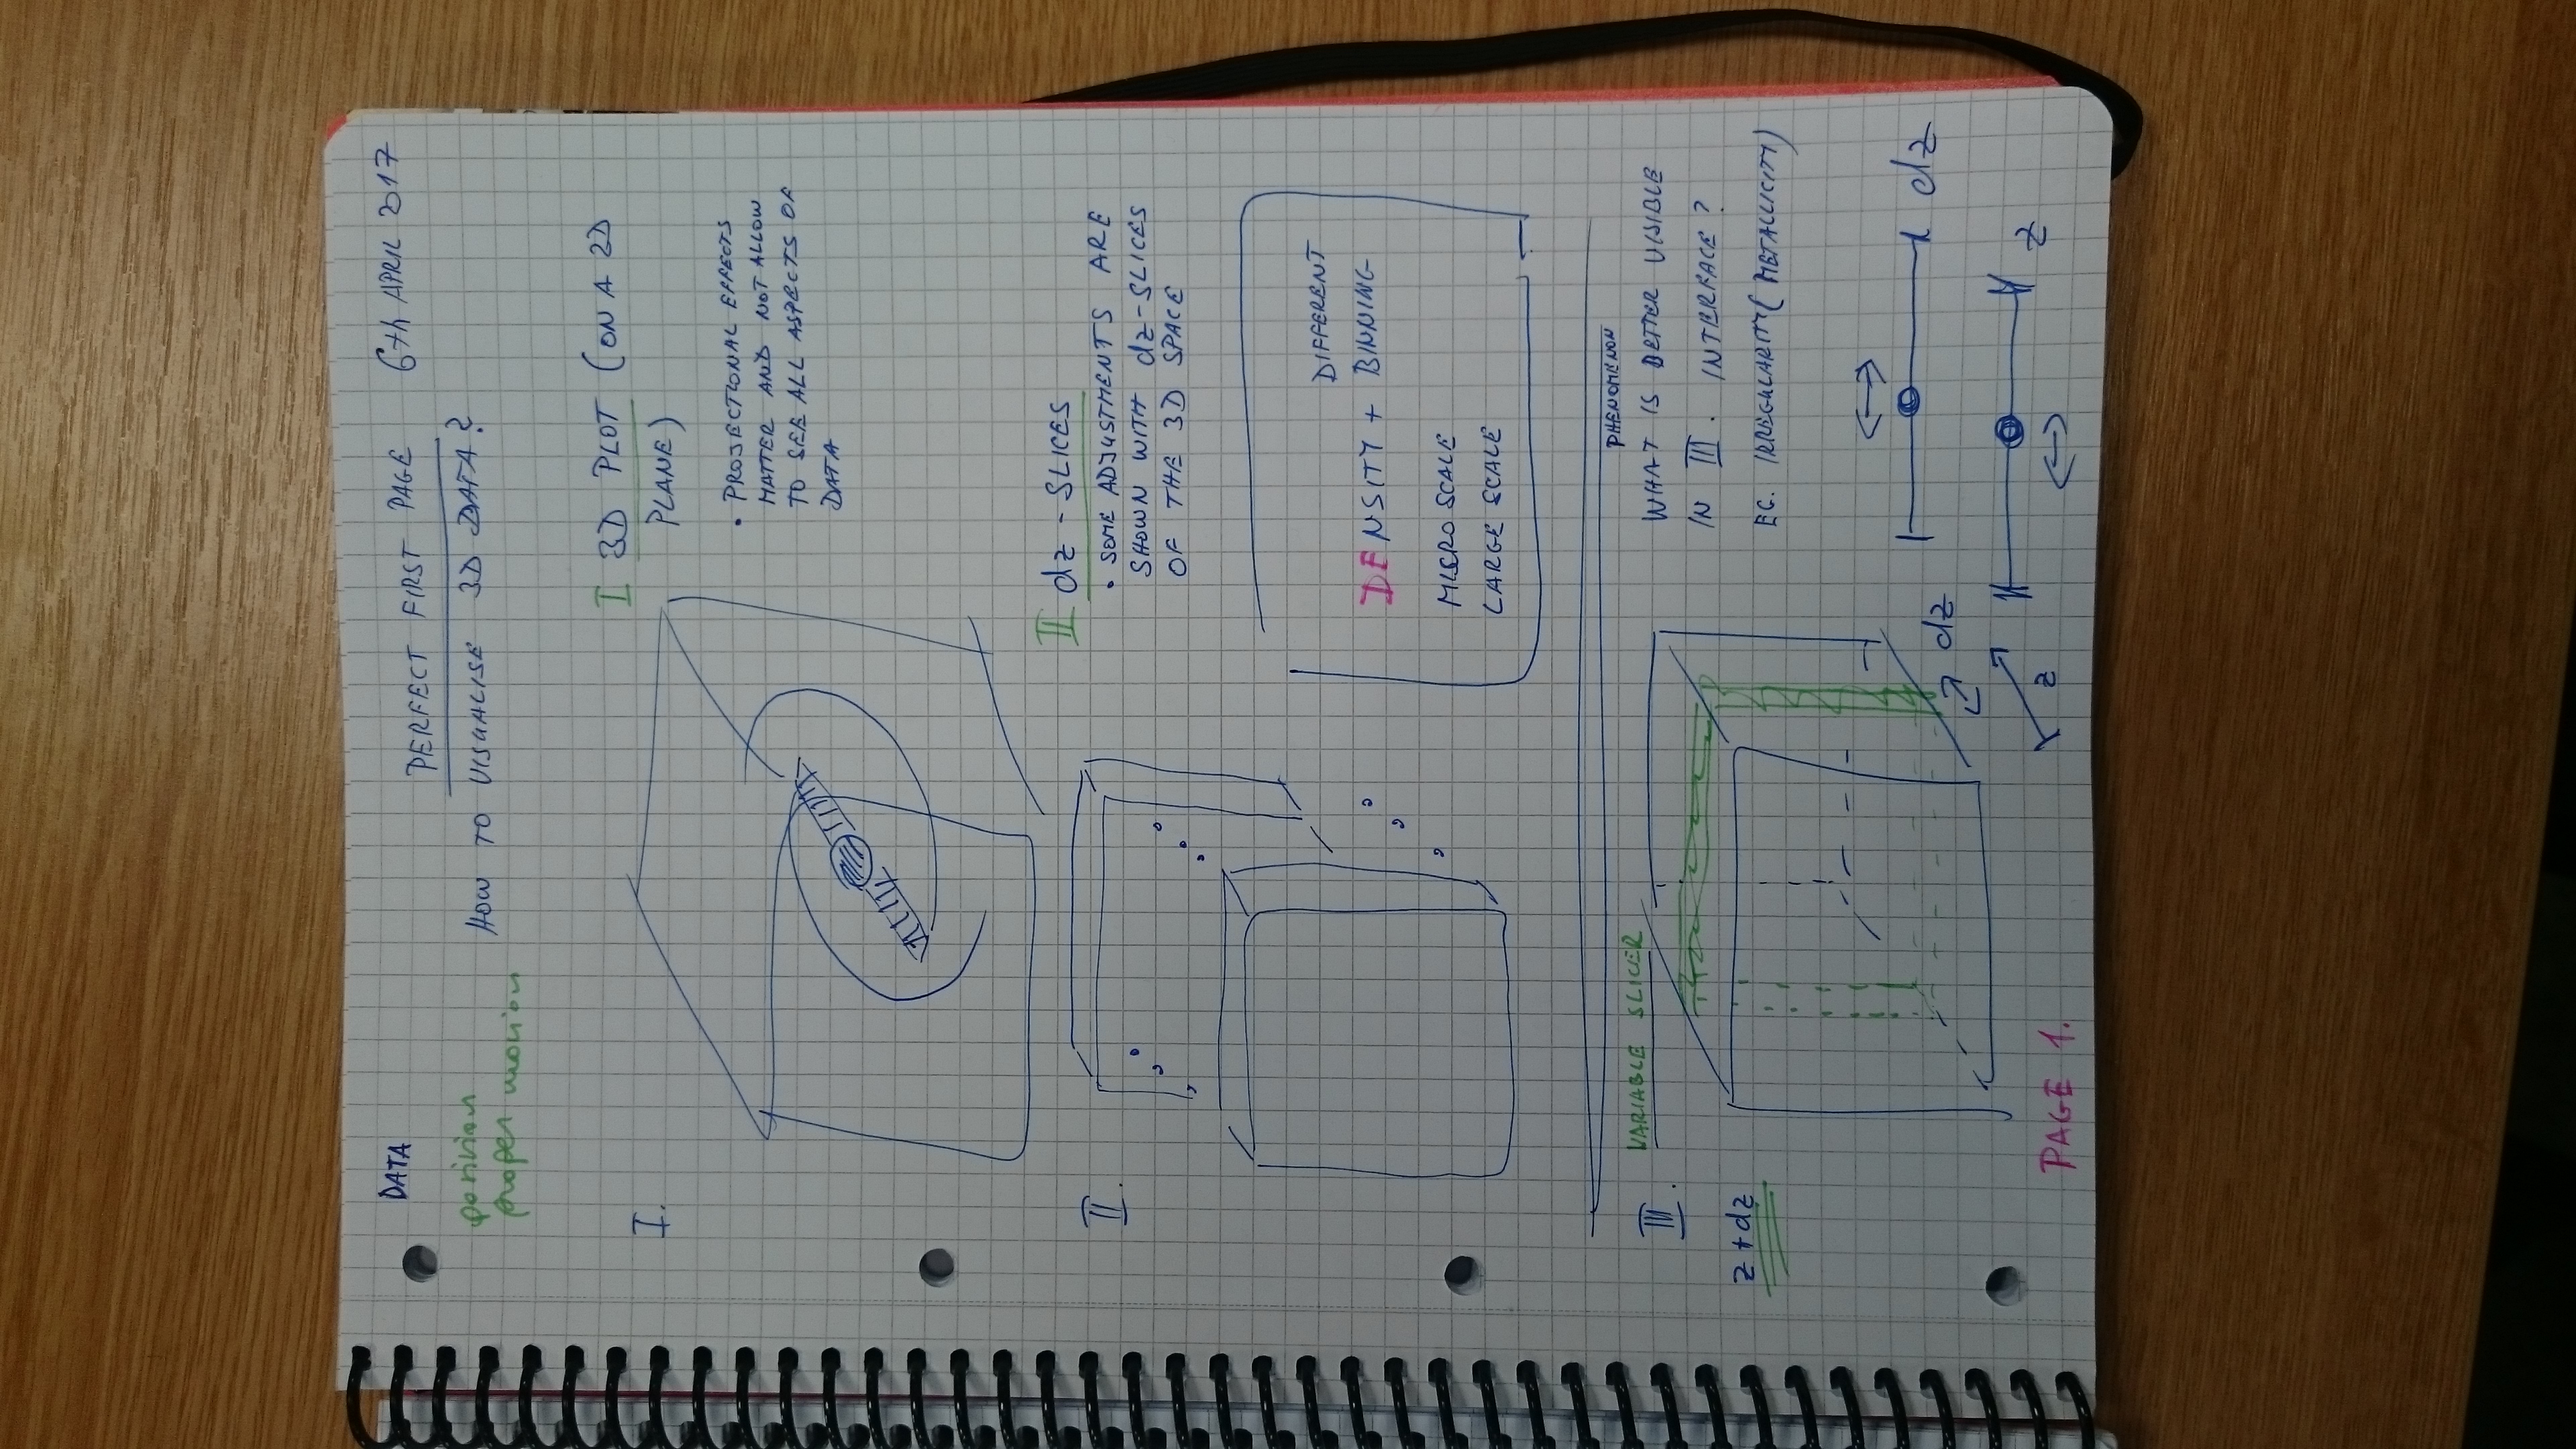 DATA
PERFECT FIRST PAGE
6th APRIL 2017
position
proper motion
HOW TO VISUALISE 3D DATA?
I.
I 3D PLOT (ON A 2D
PLANE)
• PROJECTIONAL EFFECTS
MATTER AND NOT ALLOW
TO SEE ALL ASPECTS OF
DATA
II.
II dz-SLICES
• SOME ADJUSTMENTS ARE
SHOWN WITH dz-SLICES
OF THE 3D SPACE
DIFFERENT
DENSITY + BINNING
MICRO SCALE
LARGE SCALE
III. VARIABLE SLICER
z+dz
PHENOMENON
WHAT IS BETTER VISIBLE
IN III. INTERFACE?
EG. IRREGULARITY (METALLICITY)
dz
dz
z
z
PAGE 1.